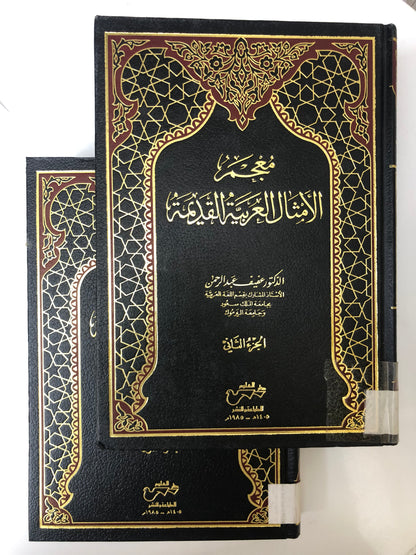 معجم
الأمثال العربية القديمة
الدكتور عفيف عبد الرحمن
الأستاذ المشارك بقسم اللغة العربية
بجامعة الملك سعود
وجامعة اليرموك
الجزء الثاني
دار العلوم
للطباعة والنشر
١٤٠٥هـ - ١٩٨٥م
دار العلوم
للطباعة والنشر
١٤٠٥هـ - ١٩٨٥م